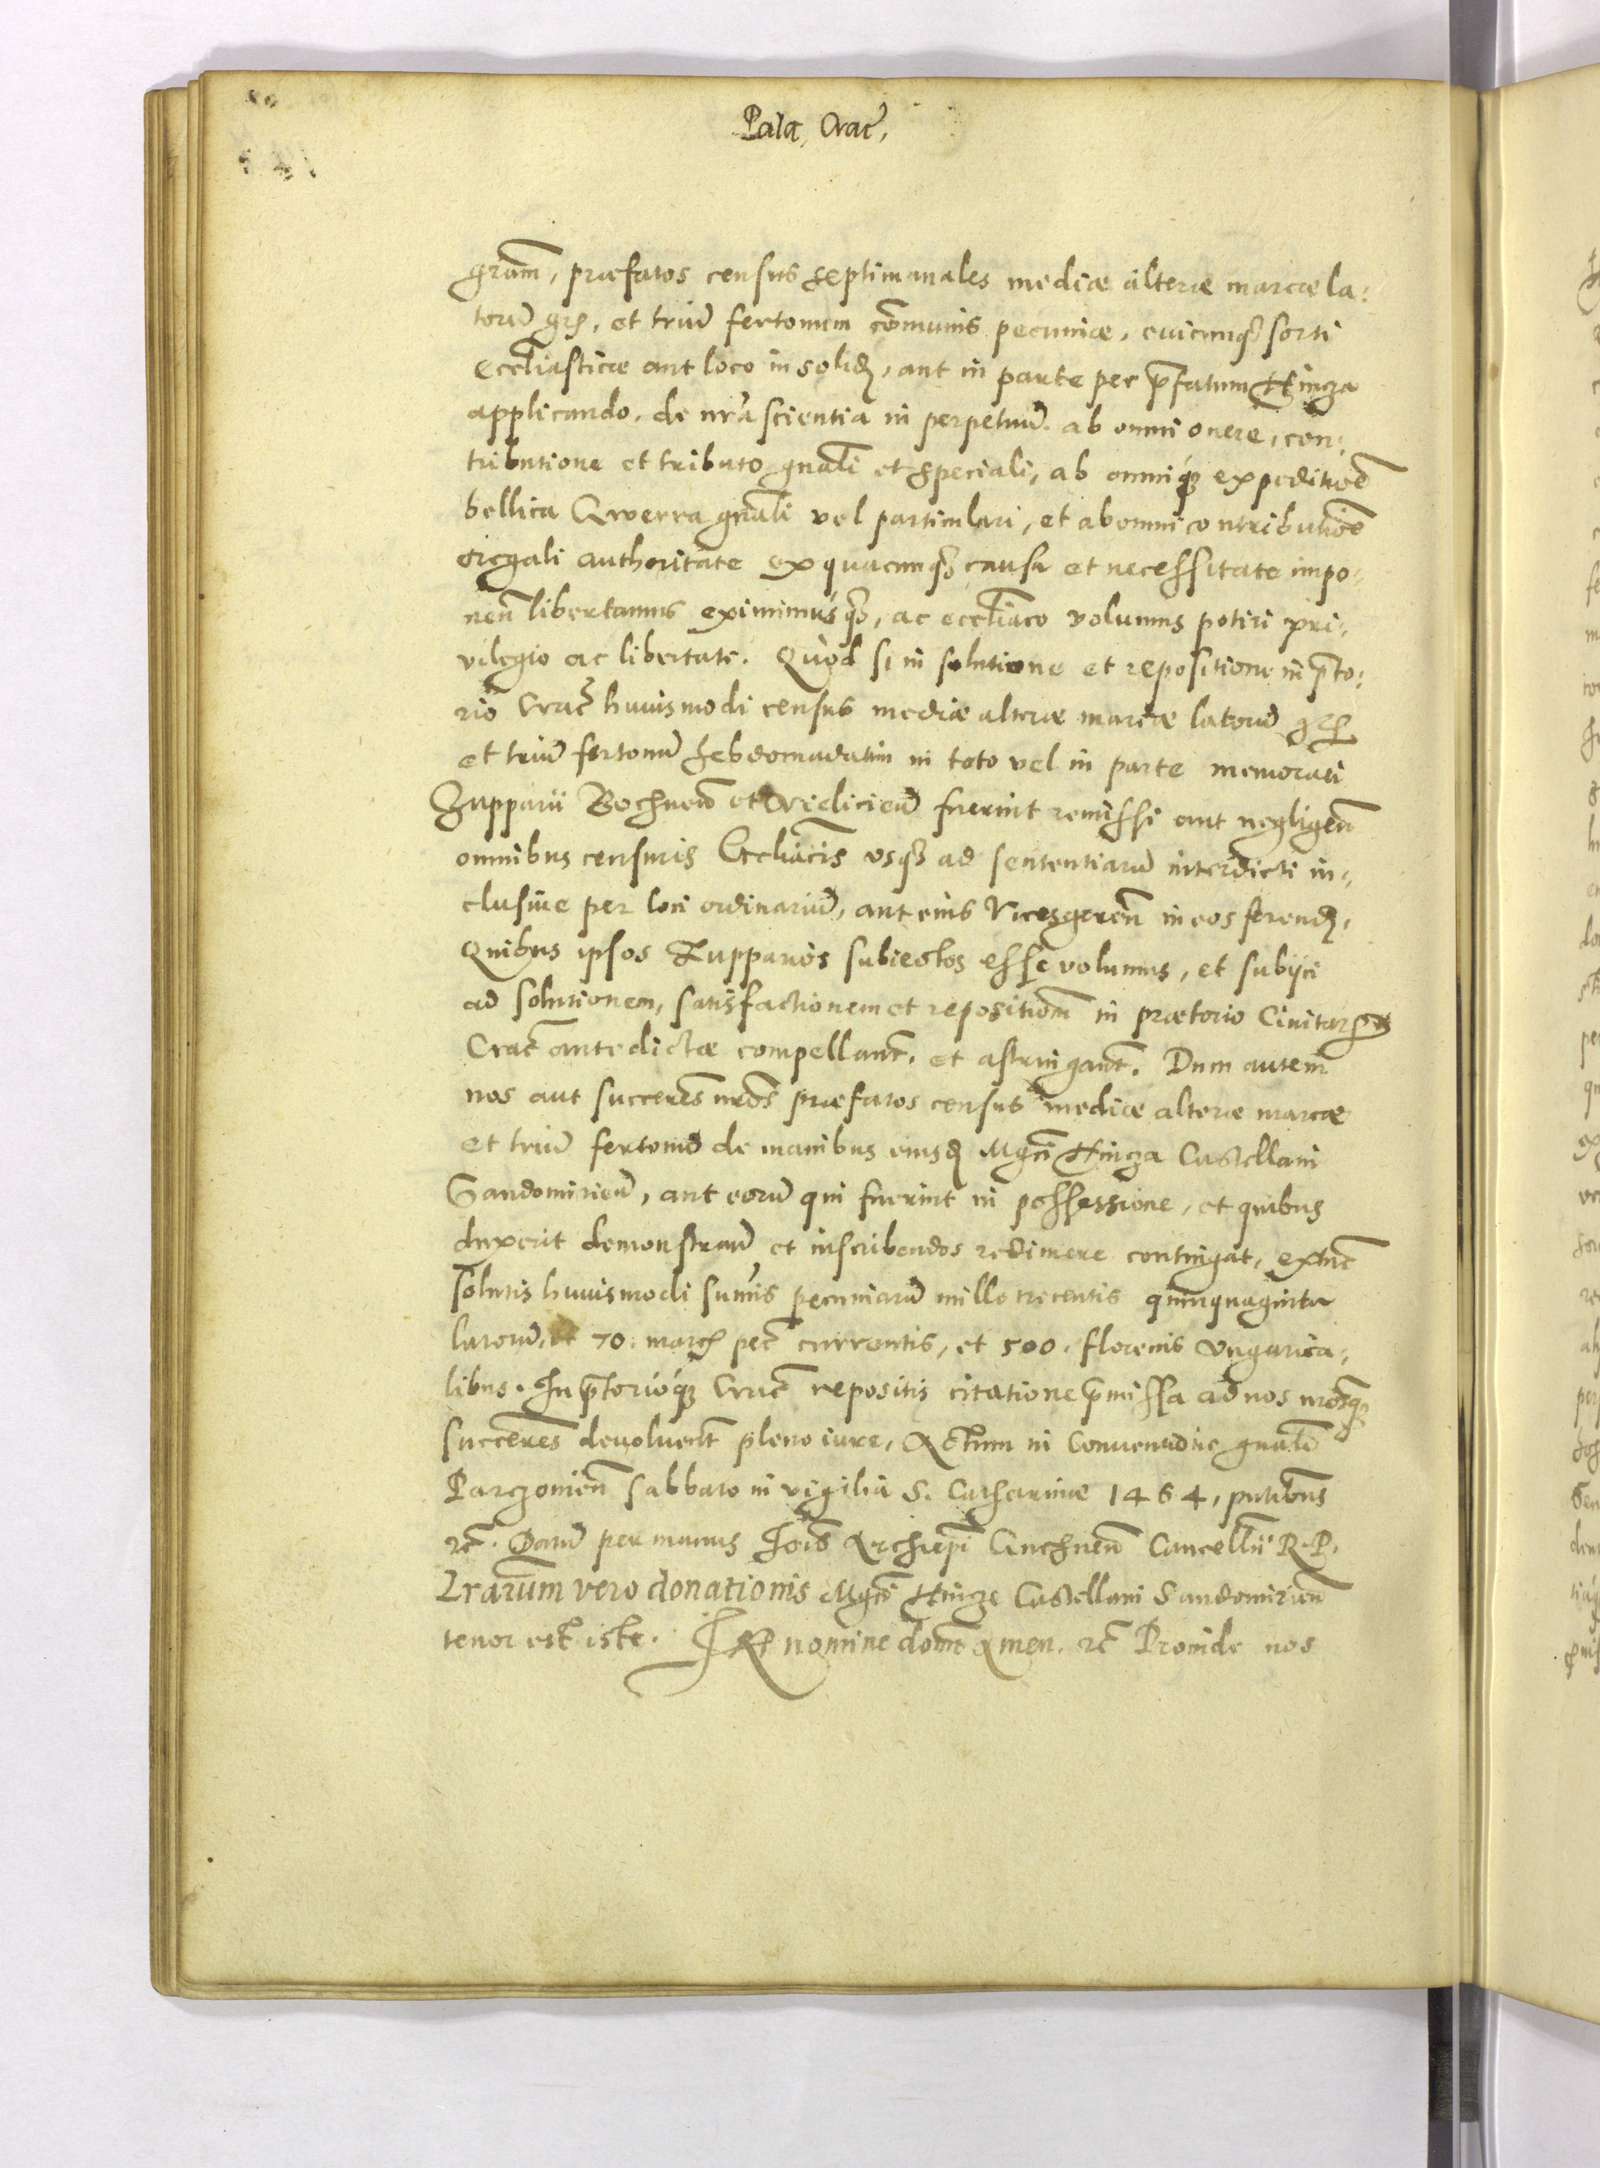 Pala, Crac̃,
gram̃, præfatos census septimanales mediæ alteræ marcæ la:
torũ grs, et triũ fertonum cõmunis pecuniæ, cuicunqȝ sorti
ecclẽiasticæ aut loco in solidȝ, aut in parte per p̃fatum Hincza
applicando, de nr̃a scientia in perpetuũ ab omni onere, con:
tributione et tributo gnãli et speciali, ab omniqȝ expeditioẽ
bellica Gwerra gnãli vel particulari, et ab omni contributioẽ
à regali authoritate ex quacunqȝ causa et necessitate impo:
neñ libertamus eximimusqȝ, ac ecclĩaco volumus potiri pri:
vilegio ac libertate. Quòd si in solutione et repositione in p̃to:
rio Crac̃ huiusmodi census mediæ alteræ marcæ latorũ grs
et triũ fertonũ hebdomadatim in toto vel in parte memorati
Zupparii Bochneñ et Vieliciẽn fuerint remissi aut negligeñ
omnibus censuris Ecclĩacis usqȝ ad sententiarũ interdicti in:
clusive per loci ordinariũ, aut eius Vicesgereñ in eos ferendȝ,
Quibus ipsos Zupparios subiectos esse volumus, et subijci
ad solutionem, satisfactionem et repositionẽ in prætorio Civitatis
Crac̃ antedictæ compellant̃, et astringant̃. Dum autem
nos aut succerẽs nrõs præfatos census mediæ alteræ marcæ
et triũ fertonũ de manibus eiusdȝ Mgci Hincza Castellani
Sandomirieñ, aut eorũ qui fuerint in possessione, et quibus
duxerit demonstrand̃ et inscribendos redimere contingat, extunc
solutis huiusmodi sum̃is pecuniarũ mille trecentis quinquaginta
latorũ, et 70. marcȝ pec̃ currentis, et 500. florenis Ungarica:
libus. In p̃torioqȝ Crac̃ repositis citatione p̃missa ad nos nrõsqȝ
succerẽs devoluent̃ pleno iure, Actum in Conventione gnãli
Parczovieñ sabbato in vigilia S. Catharinæ 1464, pntĩbus
rc̃. Datũ per manus Joĩs Archiepĩ Gnezneñ Cancellĩi R. P.
Lrarũm vero donationis Mgci Hincze Castellani Sandomirieñ
tenor est iste. IN nomine domĩ Amen. rc̃ Proinde nos